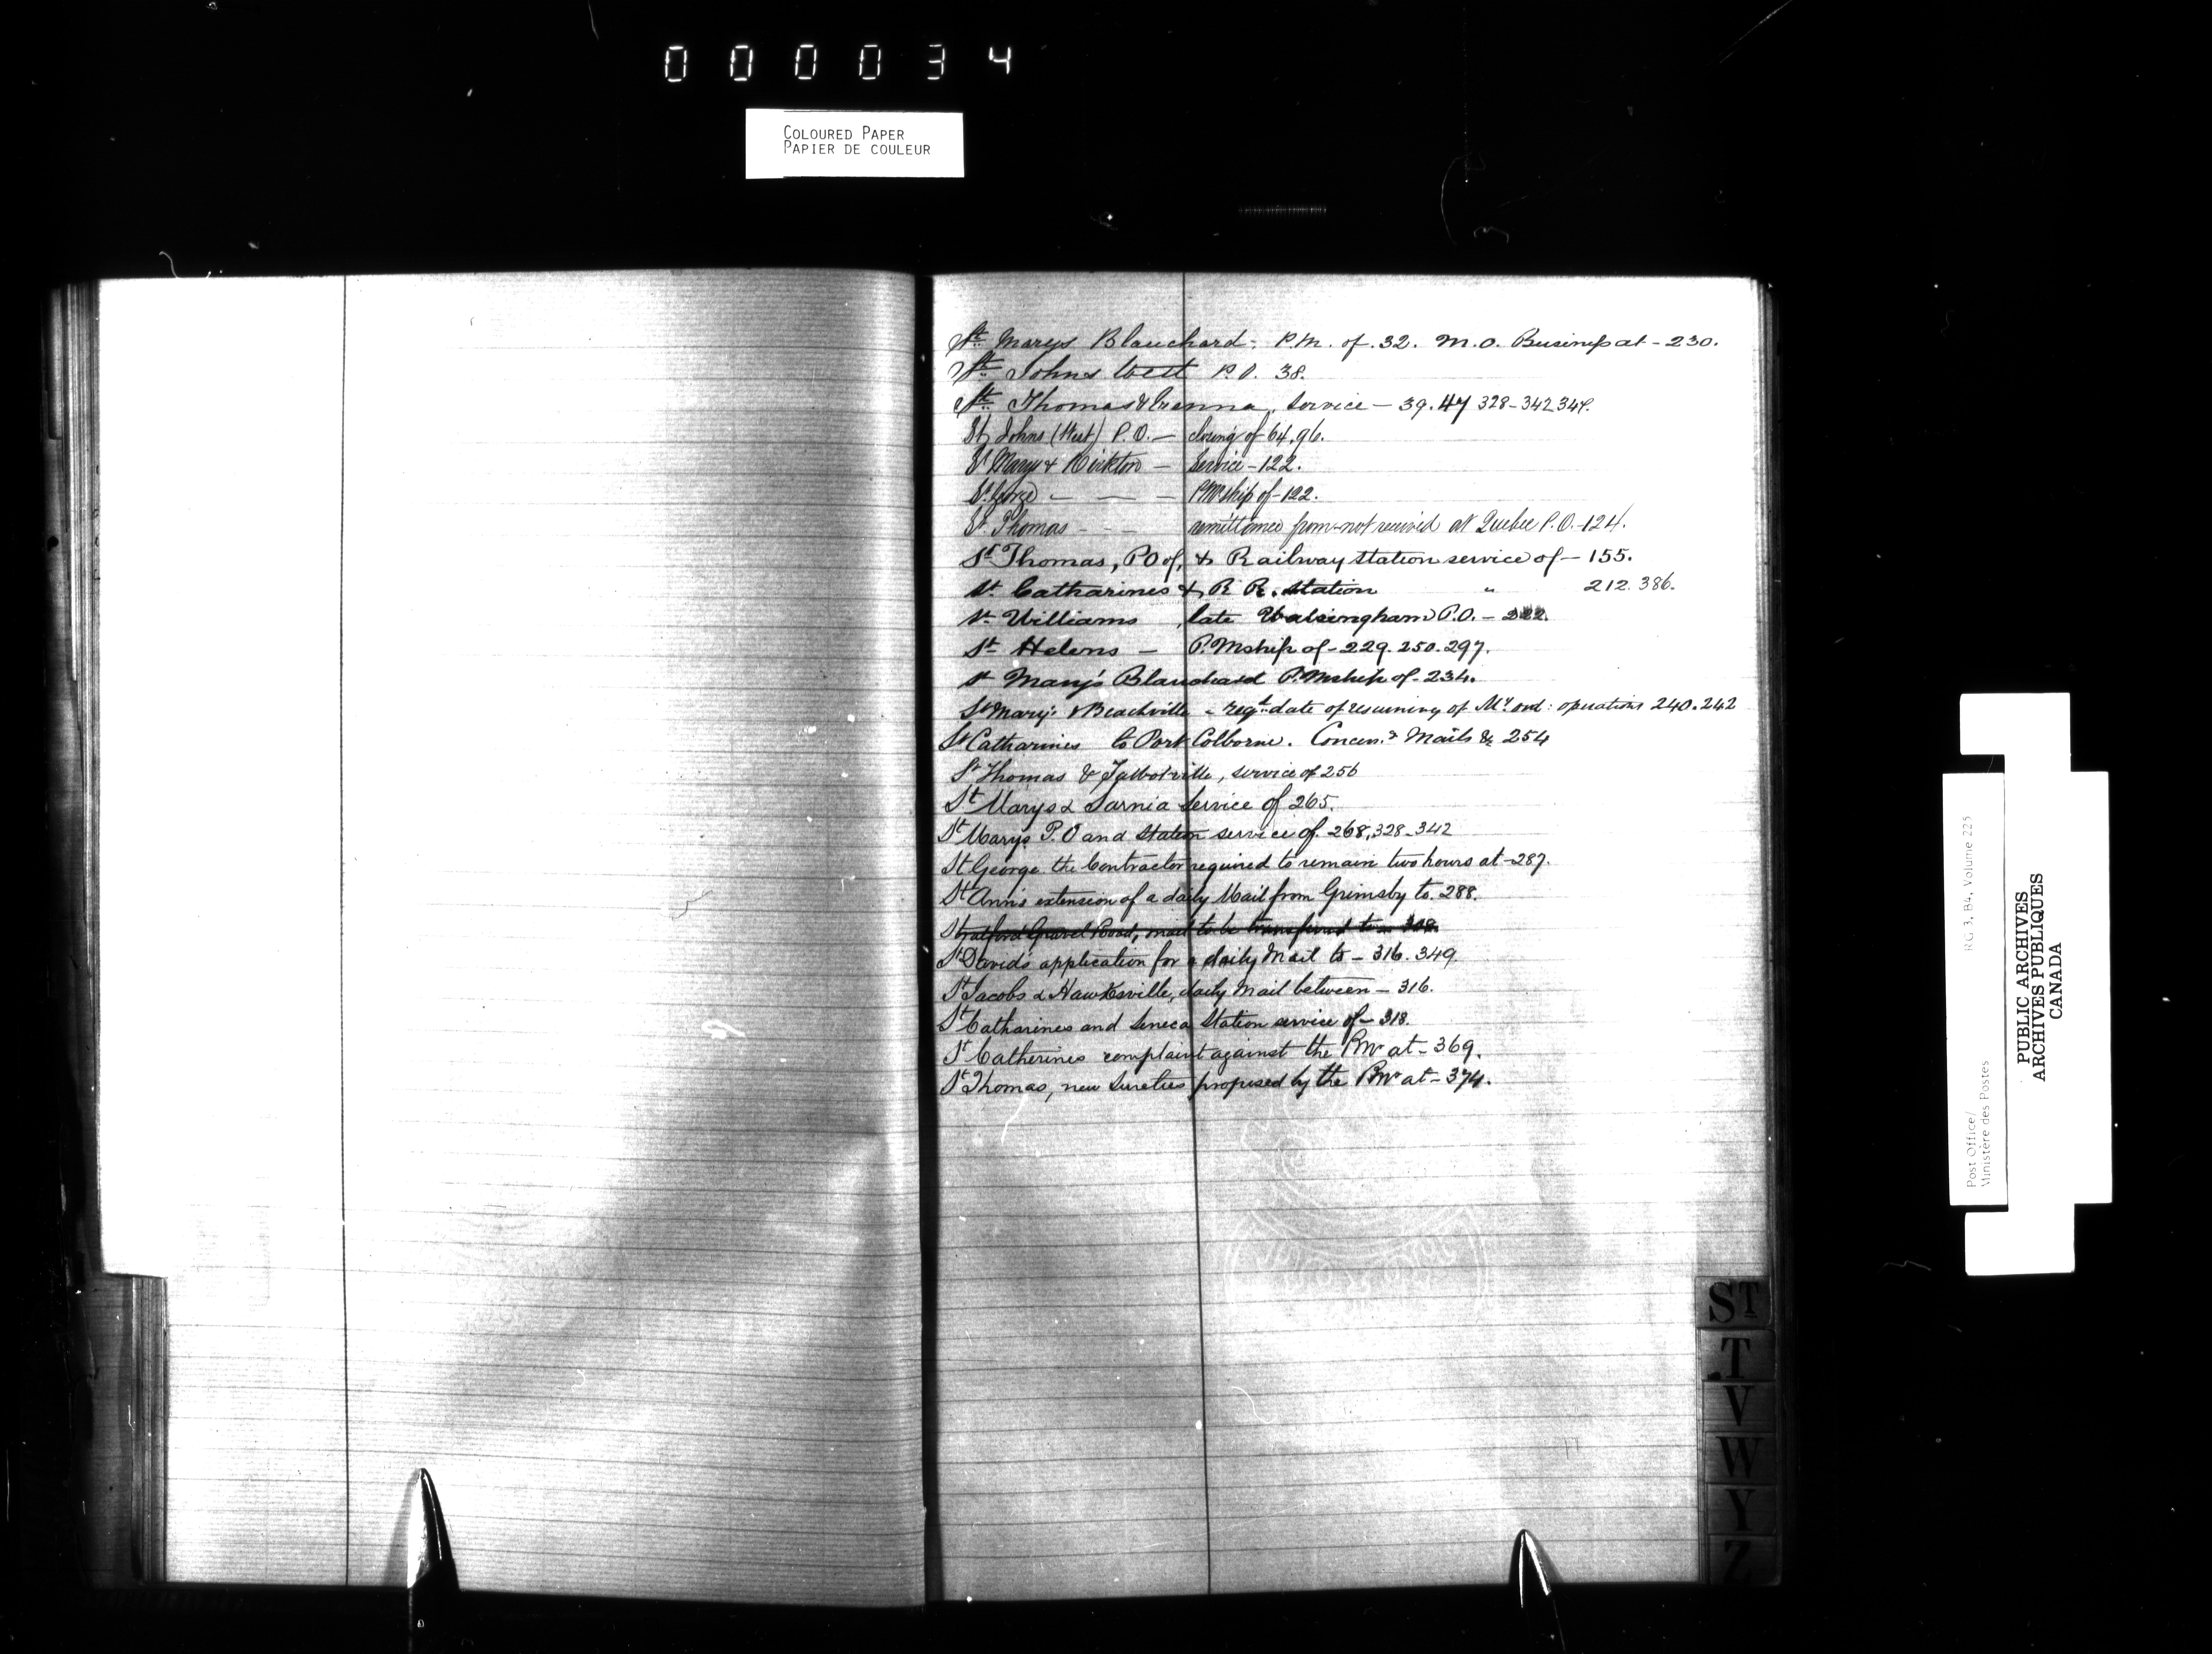 000034
COLOURED PAPER
PAPIER DE COULEUR
St. Marys Blanchard - P.M. of. 32. M.O. Business at - 230.
St. Johns West P.O. 38.
St. Thomas & Vienna, Service - 39. 47 328-342 344.
St Johns (West) P.O. - closing of 64, 96.
St Marys & Kirkton - Service - 122.
St. George - - - PMship of - 122.
St. Thomas - - - remittance from - not received at Quebec P.O. - 124.
St Thomas, PO of, & Railway station service of - 155.
St. Catharines & R R. station " 212. 386.
St. Williams, late Walsingham P.O. - 222.
St Helens - P.Mship of - 229. 250. 297.
St Mary's Blanchard P.Mship of - 234.
St Mary's & Beachville - reqg. date of resuming of My. ord: operations 240. 242
St Catharines to Port Colborne. Mails & 254
St Thomas & Talbotville, service of 256
St Marys & Sarnia Service of 265.
St Marys P.O and Station service of. 268, 328-342
St George the Contractor required to remain two hours at - 287.
St Ann's extension of a daily Mail from Grimsby to. 288.
Stratford Gravel Road, mail to be transferred to - 308.
St David's application for a daily Mail to - 316. 349.
St Jacobs & Hawksville, daily Mail between - 316.
St Catharines and Seneca Station service of - 318.
St Catherines complaint against the PMr at - 369.
St Thomas, new Sureties proposed by the PMr at - 374.
ST
T
V
W
Y
Z
Post Office/
Ministère des Postes
RG 3, B4, Volume 225
PUBLIC ARCHIVES
ARCHIVES PUBLIQUES
CANADA